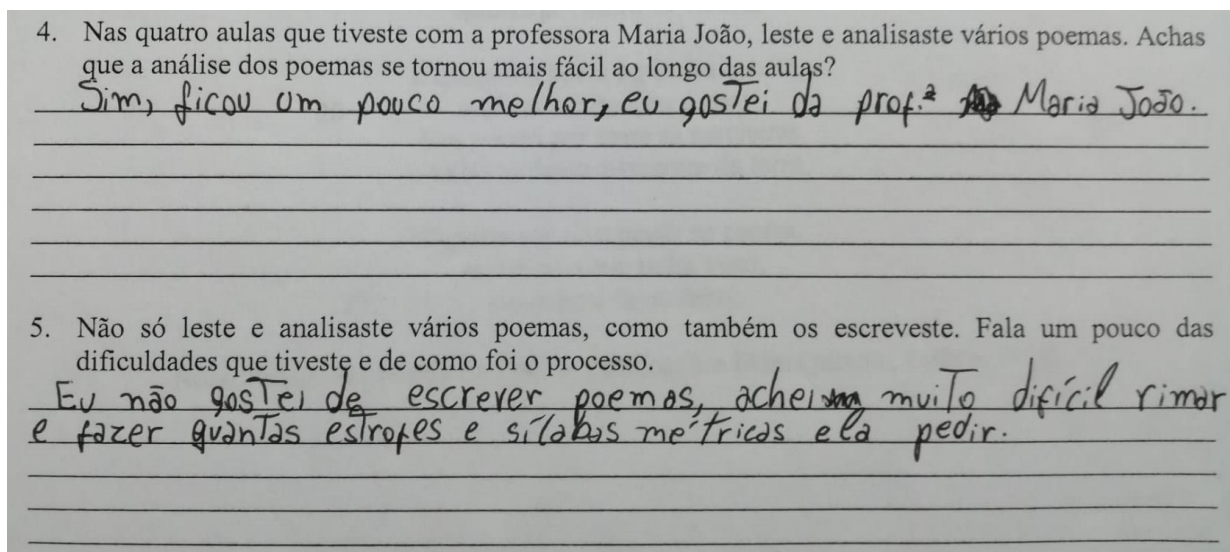 4. Nas quatro aulas que tiveste com a professora Maria João, leste e analisaste vários poemas. Achas
que a análise dos poemas se tornou mais fácil ao longo das aulas?
Sim, ficou um pouco melhor, eu gostei da prof.ª Maria João.
5. Não só leste e analisaste vários poemas, como também os escreveste. Fala um pouco das
dificuldades que tiveste e de como foi o processo.
Eu não gostei de escrever poemas, achei muito difícil rimar
e fazer quantas estrofes e sílabas métricas ela pedir.